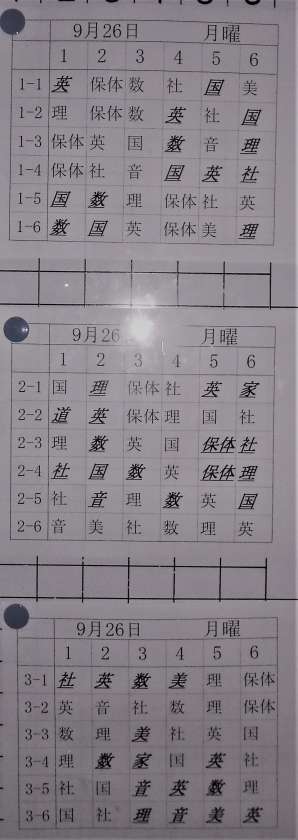 9月26日 月曜
1 2 3 4 5 6
1-1 英 保体 数 社 国 美
1-2 理 保体 数 英 社 国
1-3 保体 英 国 数 音 理
1-4 保体 社 音 国 英 社
1-5 国 数 理 保体 社 英
1-6 数 国 英 保体 美 理
9月26 月曜
1 2 3 4 5 6
2-1 国 理 保体 社 英 家
2-2 道 英 保体 理 国 社
2-3 理 数 英 国 保体 社
2-4 社 国 数 英 保体 理
2-5 社 音 理 数 英 国
2-6 音 美 社 数 理 英
9月26日 月曜
1 2 3 4 5 6
3-1 社 英 数 美 理 保体
3-2 英 音 社 数 理 保体
3-3 数 理 美 社 英 国
3-4 理 数 家 国 英 社
3-5 社 国 音 英 数 理
3-6 国 社 理 音 美 英